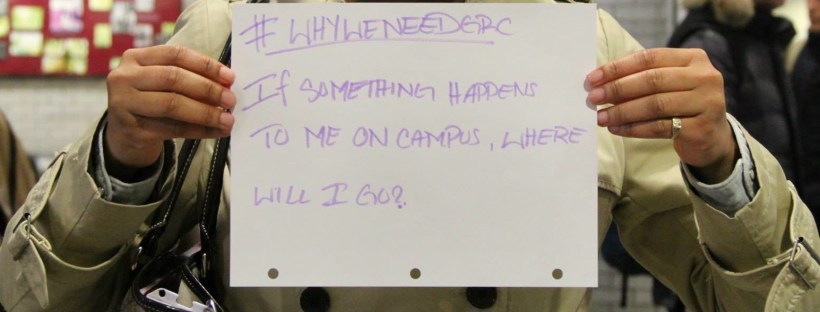 #WHYWENEEDERC
If SOMETHING HAPPENS
TO ME ON CAMPUS, WHERE
WILL I GO?